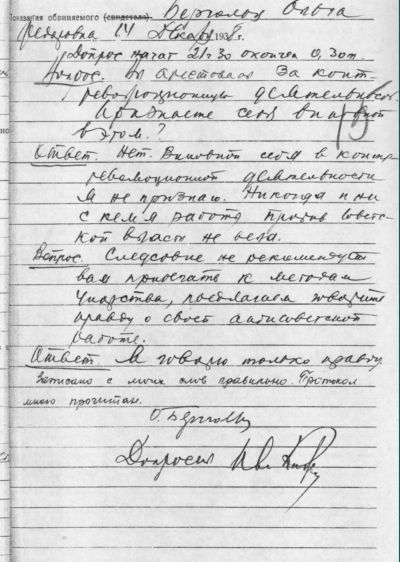 Показания обвиняемого (свидетеля) Берггольц Ольга
Федоровна 14 декабря 1938 г.
Допрос начат 21-30 окончен 0,30 м.
Вопрос. Вы арестованы за контр-
революционную деятельность.
Признаете себя виновной
в этом?
Ответ. Нет. Виновной себя в контр-
революционной деятельности
я не признаю. Никогда и ни
с кем я работы против совет-
ской власти не вела.
Вопрос. Следствие не рекомендует
вам прибегать к методам
упорства, предлагаем говорить
правду о своей антисоветской
работе.
Ответ. Я говорю только правду.
Записано с моих слов правильно. Протокол
мною прочитан.
О. Бергголь
Допросил